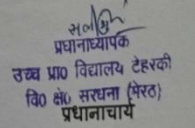 प्रधानाध्यापक
उच्च प्रा० विद्यालय टेहरकी
वि० क्षे० सरधना (मेरठ)
प्रधानाचार्य